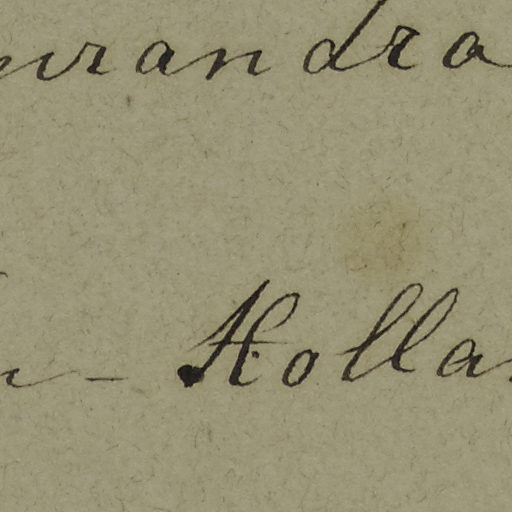 urandra
- Holla